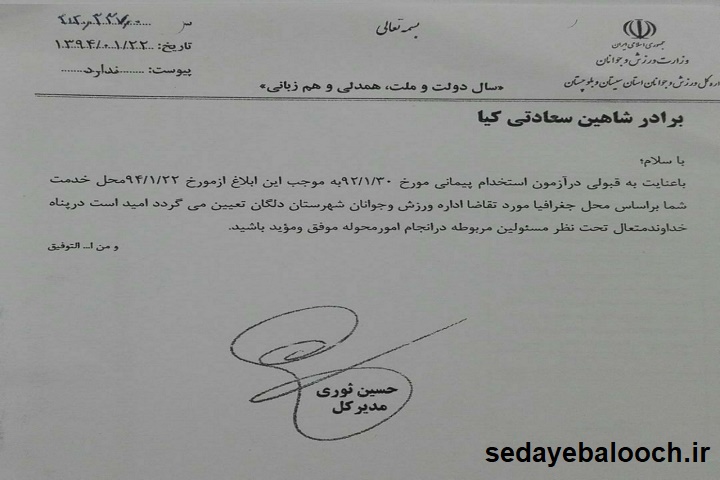 بسمه تعالی
جمهوری اسلامی ایران
وزارت ورزش و جوانان
اره کل ورزش و جوانان استان سیستان و بلوچستان
تاریخ: ۱۳۹۴/۰۱/۲۲
پیوست: ........ندارد......
«سال دولت و ملت، همدلی و هم زبانی»
برادر شاهین سعادتی کیا
با سلام؛
باعنایت به قبولی درآزمون استخدام پیمانی مورخ ۹۲/۱/۳۰به موجب این ابلاغ ازمورخ ۹۴/۱/۲۲محل خدمت
شما براساس محل جغرافیا مورد تقاضا اداره ورزش وجوانان شهرستان دلگان تعیین می گردد امید است درپناه
خداوندمتعال تحت نظر مسئولین مربوطه درانجام امورمحوله موفق ومؤید باشید.
و من ا... التوفیق
حسین ثوری
مدیرکل
sedayebalooch.ir